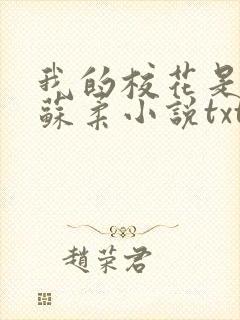 我的校花是
蘇柔小説txt
趙荣君